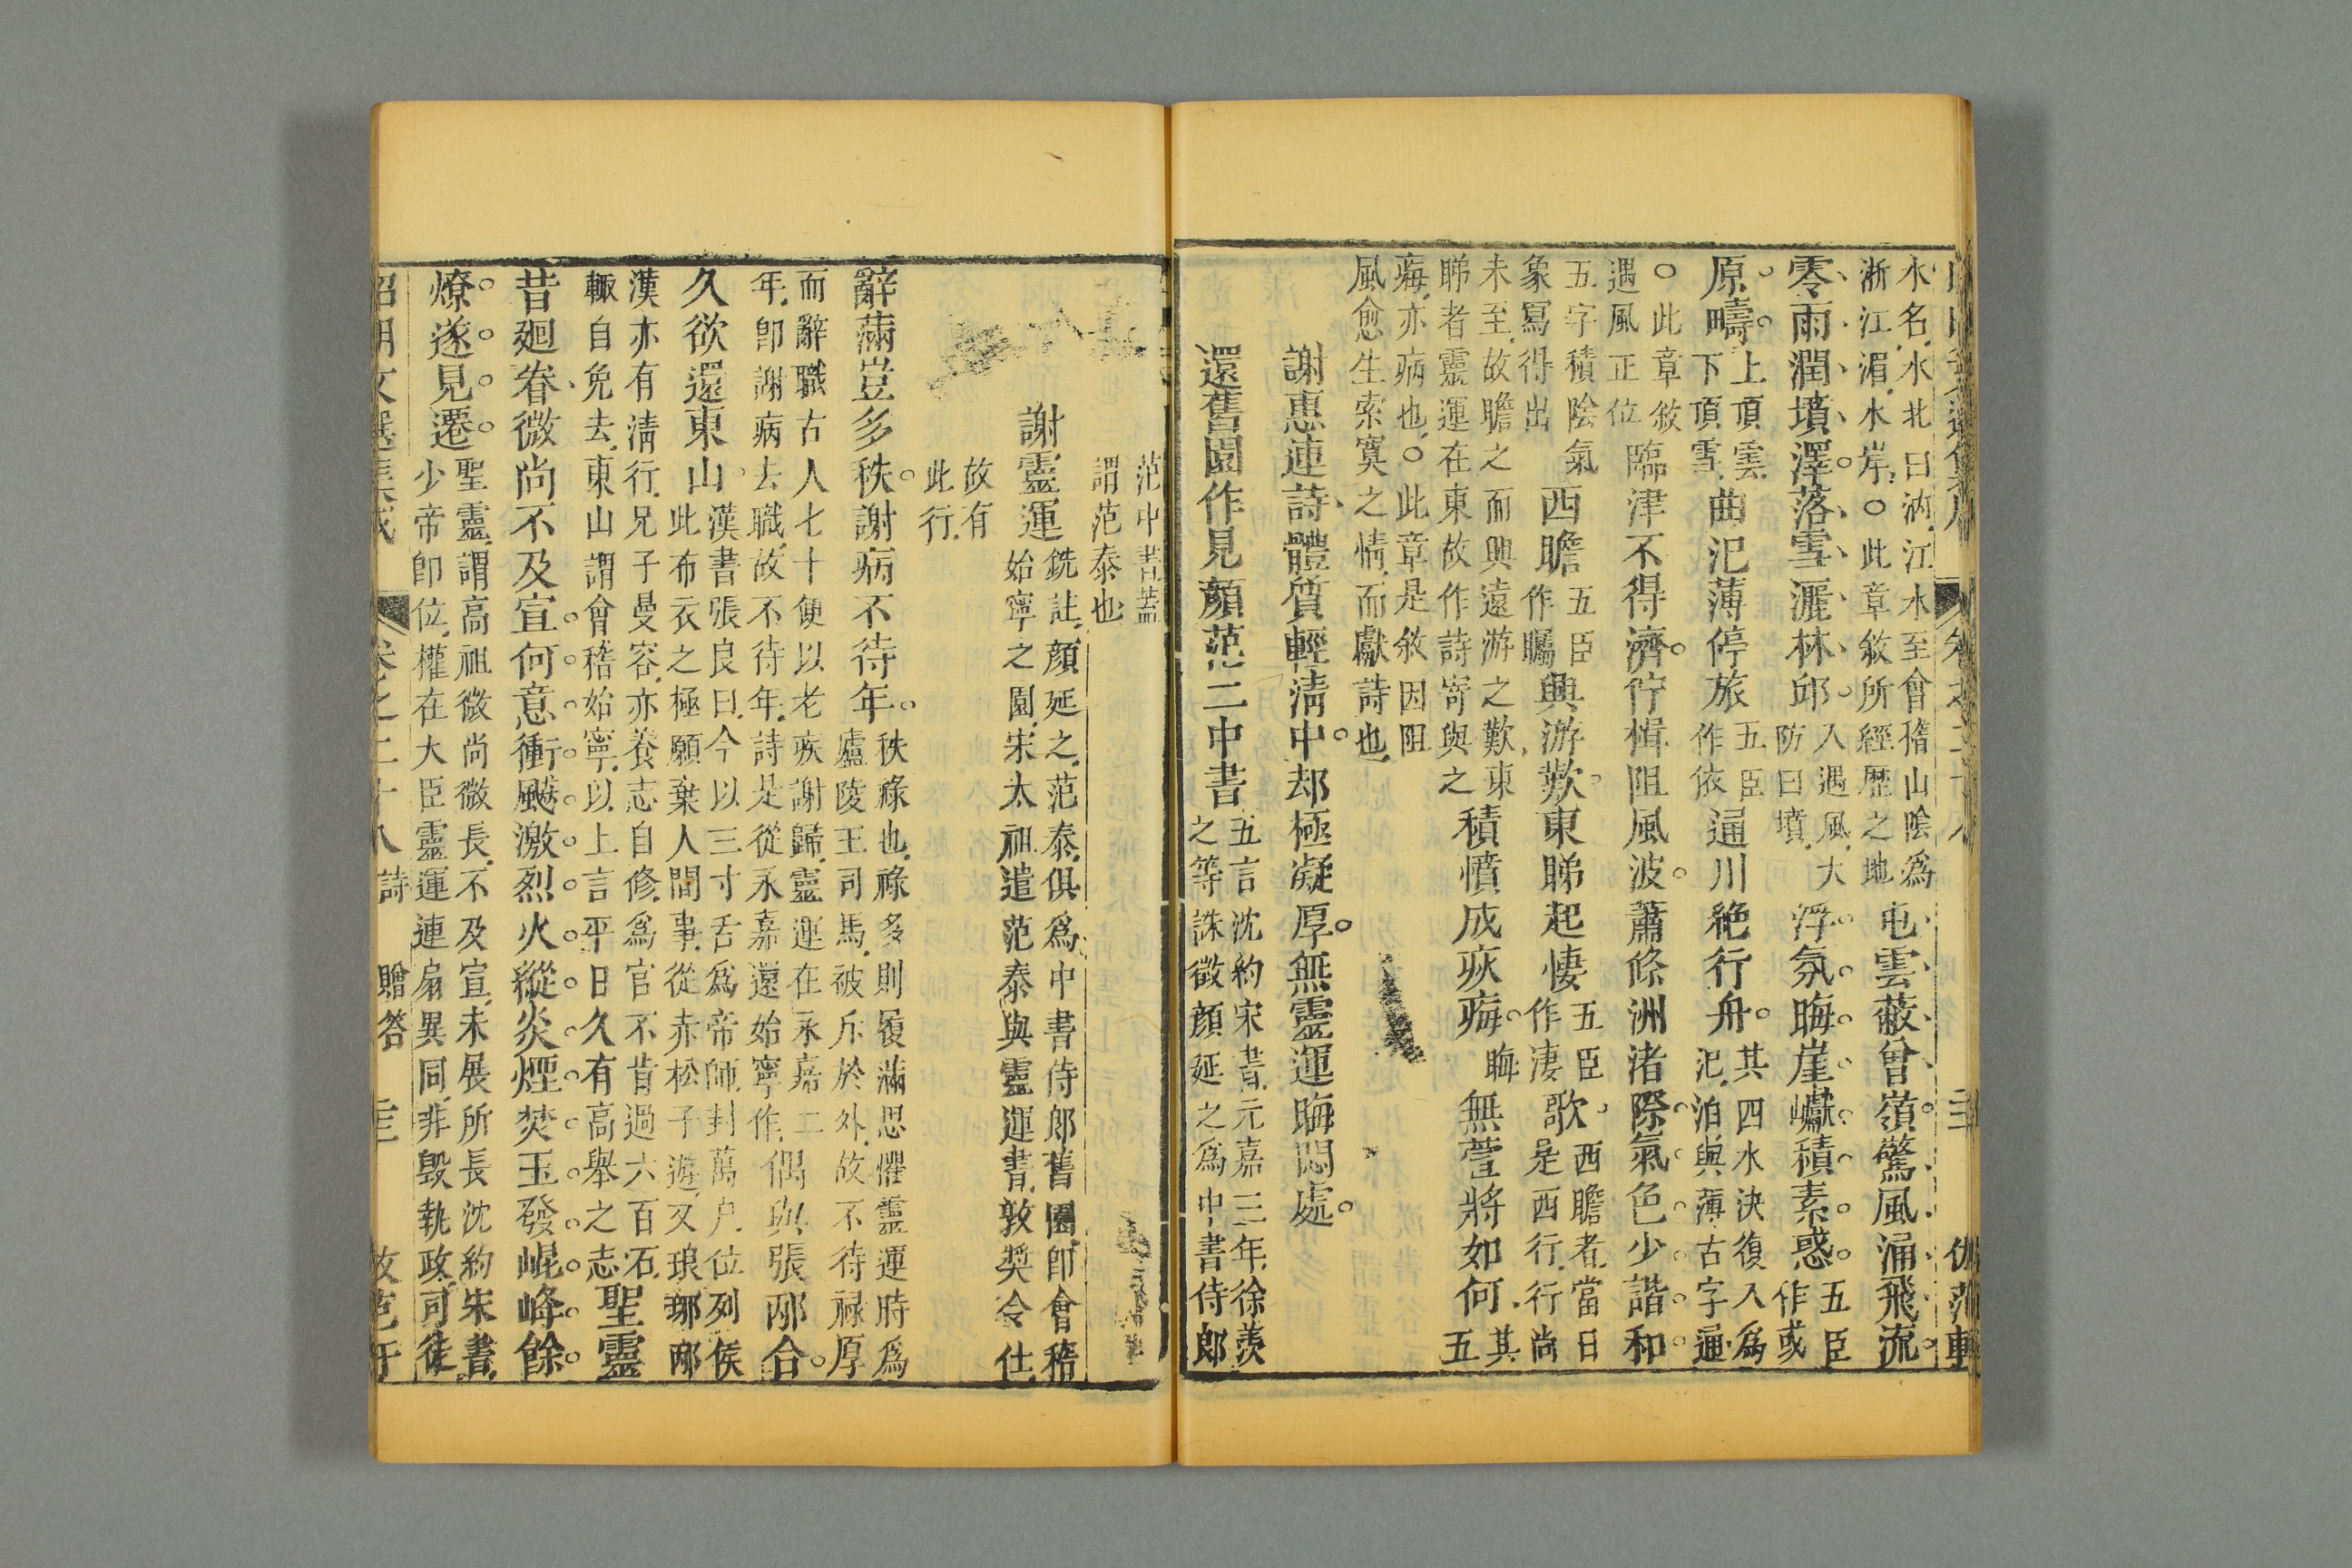 水名水北曰汭江水至會稽山陰爲
浙江湄水岸○此章敘所經歷之地
屯雲蔽曾嶺驚風涌飛流
零雨潤墳澤落雪灑林邱
入遇風大
防曰墳
浮氛晦崖巘積素惑
五臣
作或
原疇
上頂雲
下頂雪
曲汜薄停旅
五臣
作依
通川絶行舟
其四水決復入爲
汜泊與薄古字通
○此章敘
遇風正位
臨津不得濟佇楫阻風波蕭條洲渚際氣色少諧和
五字積陰氣
象寫得出
西瞻
五臣
作矚
興游歎東睇起悽
五臣
作凄
歌
西瞻者當日
是西行行尚
未至故瞻之而興遠游之歎東
睇者靈運在東故作詩寄與之
積憤成疢痗
晦
無萱將如何
其
五
痗亦病也○此章是敘因阻
風愈生索寞之情而獻詩也
謝惠連詩體質輕淸中却極凝厚無靈運晦悶處
還舊園作見顔范二中書
五言沈約宋書元嘉三年徐羨
之等誅徵顔延之爲中書侍郎
范中書蓋
謂范泰也
謝靈運
銑註顔延之范泰俱爲中書侍郎舊園卽會稽
始寧之園宋太祖遣范泰與靈運書敦奬令仕
故有
此行
辭滿豈多秩謝病不待年
秩祿也祿多則履滿思懼靈運時爲
廬陵王司馬被斥於外故不待祿厚
而辭職古人七十便以老疾謝歸靈運在永嘉二
年卽謝病去職故不待年詩是從永嘉還始寧作
偶與張邴合
久欲還東山
漢書張良曰今以三寸舌爲帝師封萬户位列侯
此布衣之極願棄人間事從赤松子遊又琅琊邴
漢亦有淸行兄子曼容亦養志自修爲官不肯過六百石
輒自免去東山謂會稽始寧以上言平日久有高舉之志
聖靈
昔廻眷微尚不及宣何意衝飈激烈火縱炎煙焚玉發崐峰餘
燎遂見遷
聖靈謂高祖微尚微長不及宣未展所長沈約宋書
少帝卽位權在大臣靈運連扇異同非毁執政司徒
昭明文選集成 卷之二十八 詩 贈答